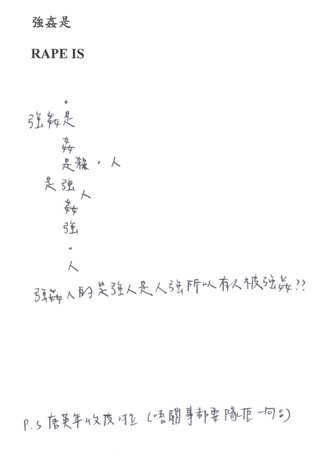 強姦是
RAPE IS
。
強姦是
姦
是殺。人
是強人
姦
強
。
人
強姦人的是強人是人強所以有人被強姦??
P.S 唐英年收皮啦 (唔關事都要隊佢一句)